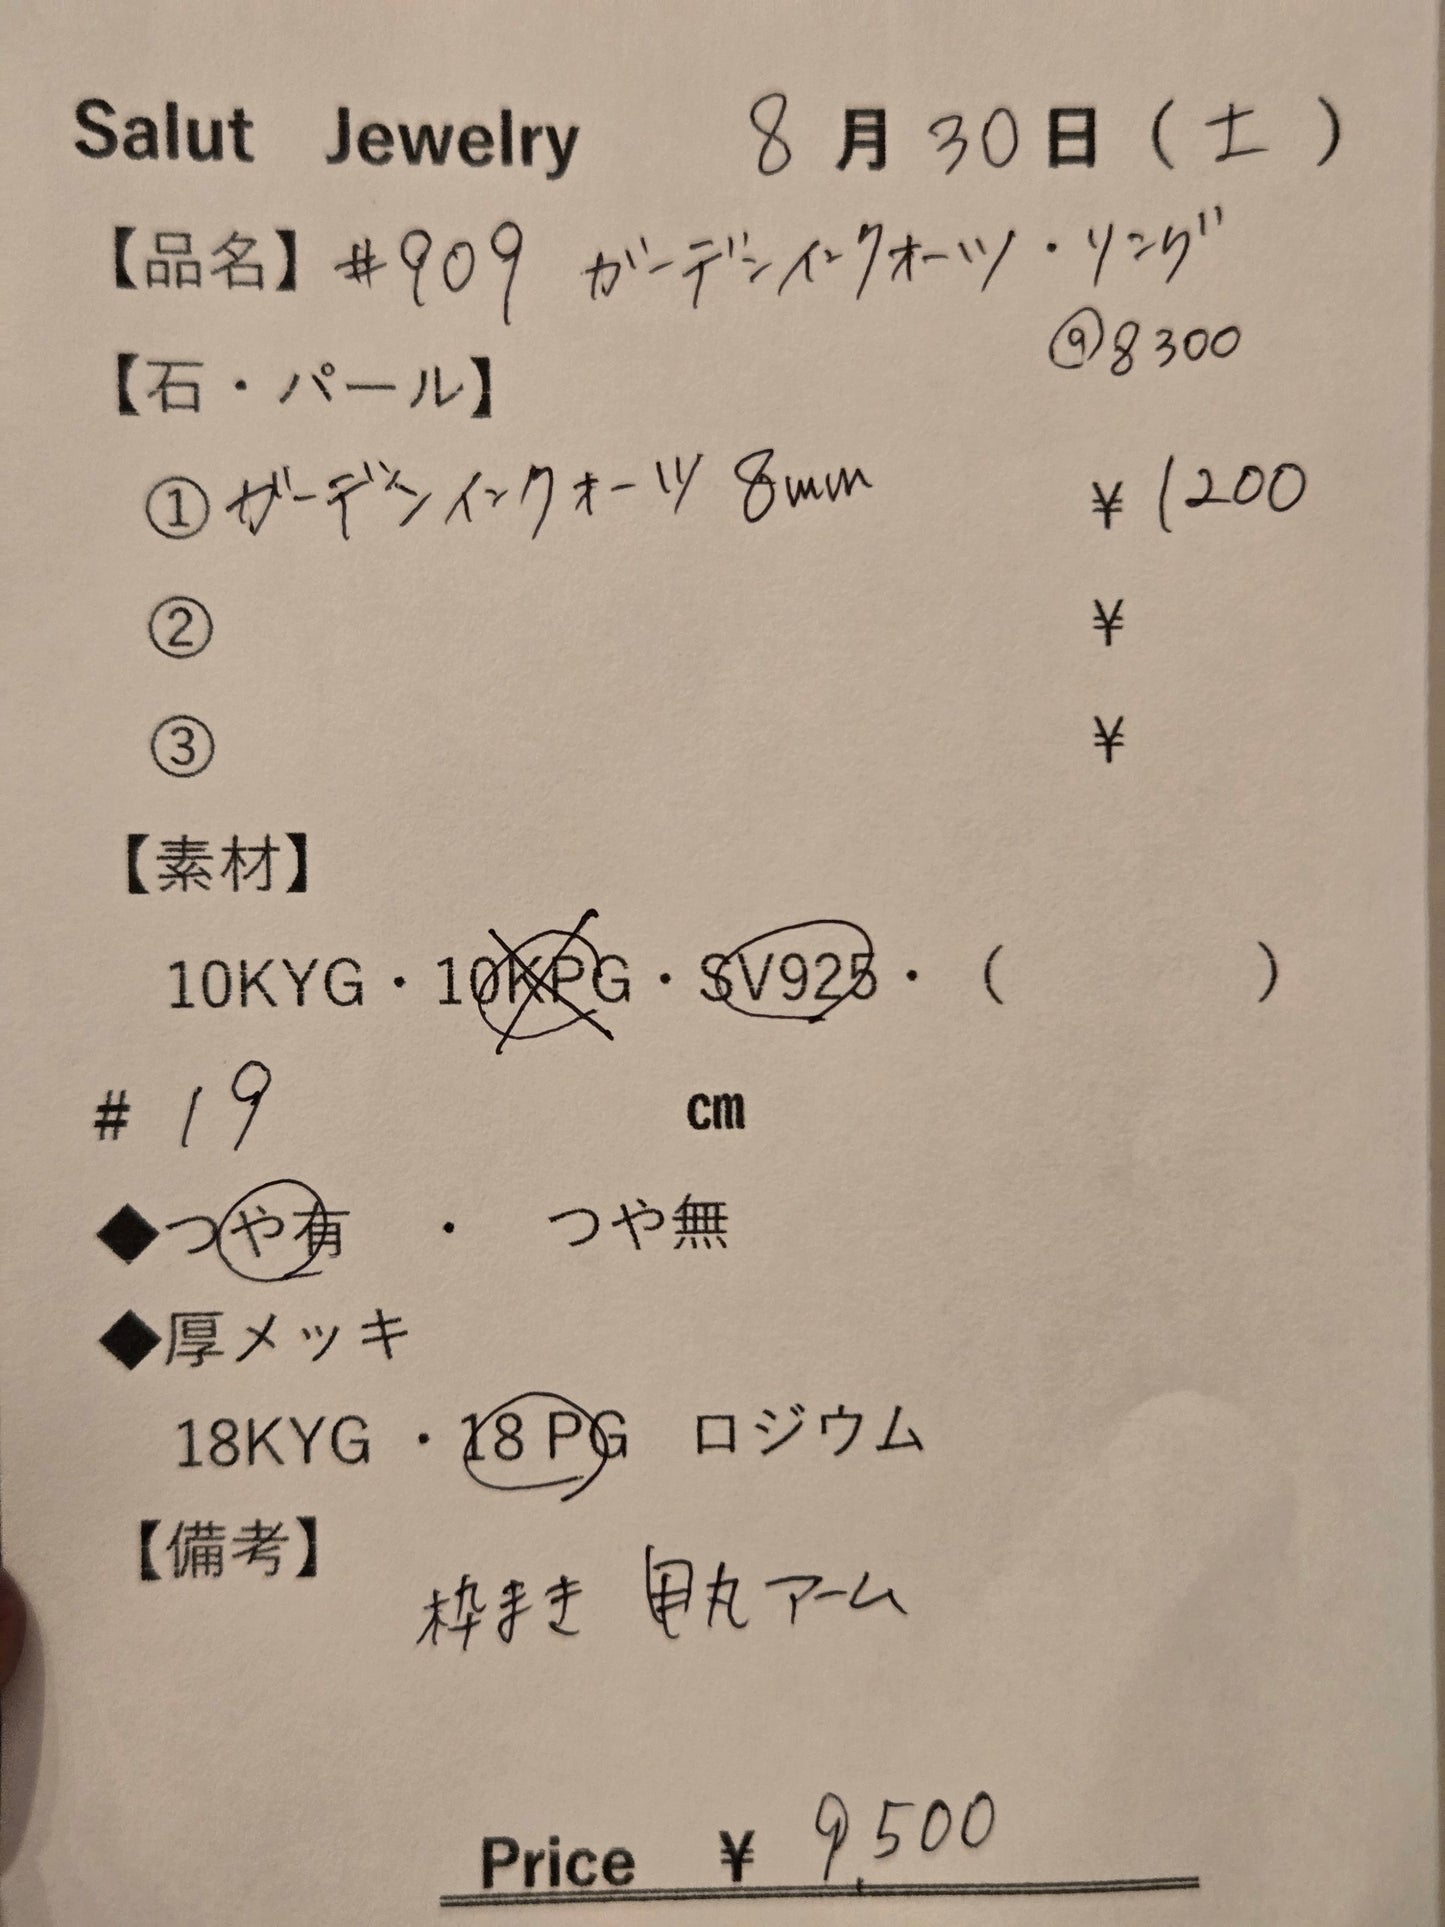 Salut Jewelry 8月30日(土)
【品名】#909 ガーデンインクォーツ・リング
@8300
【石・パール】
①ガーデンインクォーツ 8mm ¥1200
② ¥
③ ¥
【素材】
10KYG・10KPG・SV925・( )
# 19 cm
◆つや有 ・ つや無
◆厚メッキ
18KYG・18 PG ロジウム
【備考】
枠まき 甲丸アーム
Price ¥ 9,500